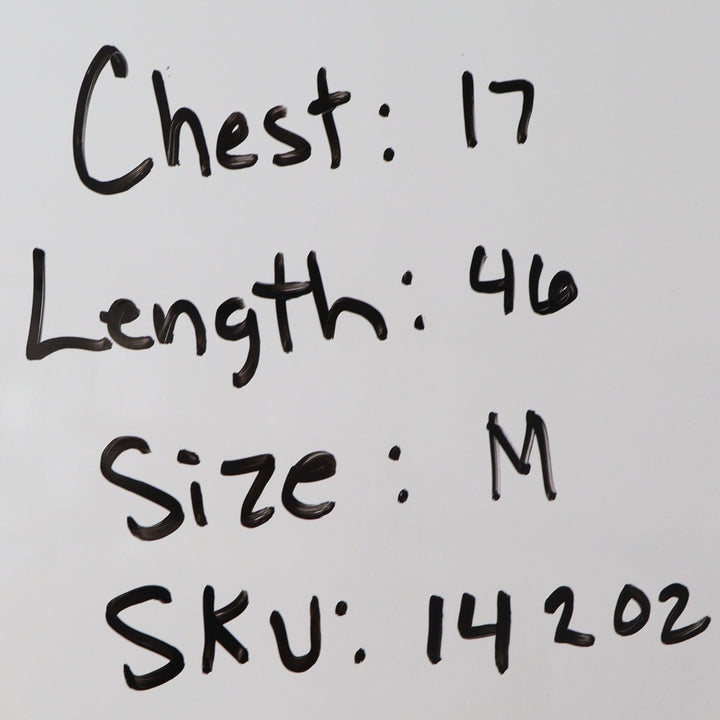 Chest: 17
Length: 46
Size: M
SKU: 14202